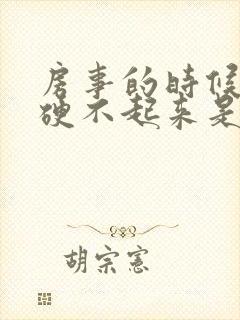 房事的時候
硬不起来是
胡宗憲